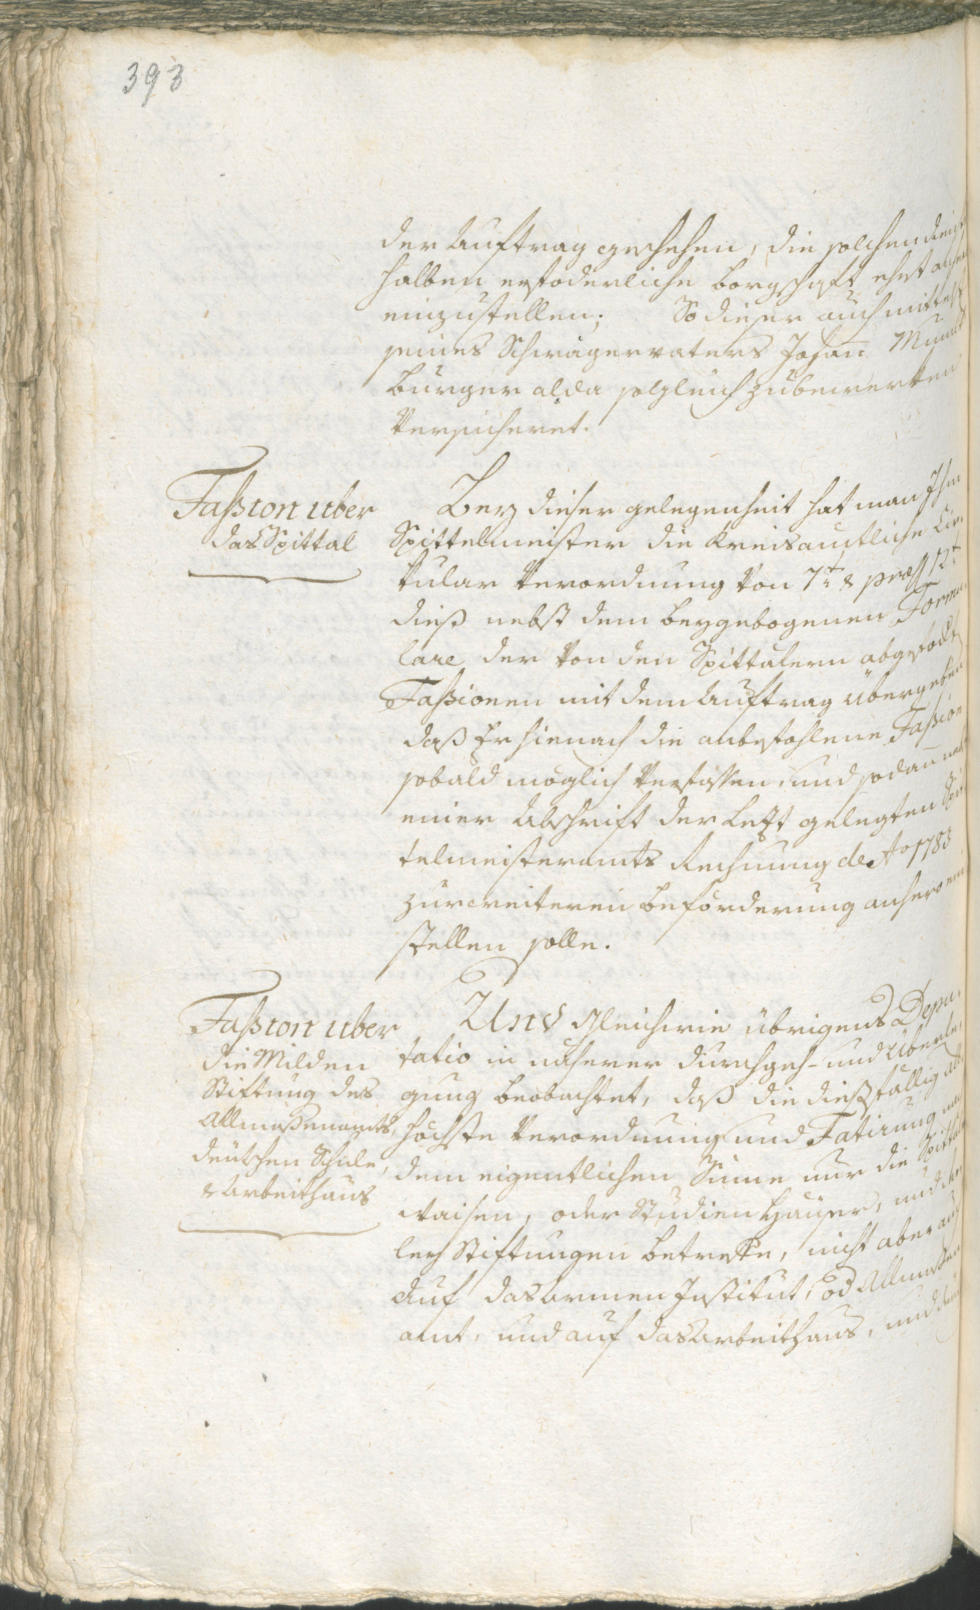 393
der Auftrag geschehen, die solchendienst
halben erfoderliche borgschaft ehest anhero
einzustellen; So dieser auch mittelst
seines Schwägervaters Johann
burger alda sogleich zubewerken
Versicheret.
Fassion uber
das Spittal
Bey dieser gelegenheit hat man Ihm
Spittelmeister die Kreisamtliche Cir
kular Verordnung von 7t & præs 12t
dieß nebst dem beygebogenen Formu
lare der von den Spittälern abgefodert
Fassionen mit dem Auftrag übergeben
daß Er hienach die anbefohlene Fassion
sobald möglich Verfassen, und sodann nebst
einer Abschrift der letzt gelegten Spit
telmeisteramts Rechnung de Ao 1783
zur weiteren beförderung anhero ein
stellen solle.
Fassion uber
die Milden
Stiftung des
Allmosenamts,
deütschen Schule,
& Arbeithaus
Und gleichwie übrigens Depu
tatio in näherer durchgeh- und Überle
gung beobachtet, daß die dießfällig all
höchste Verordnung und Fatirung nach
dem eigentlichen Sinne nur die Spittäl
Waisen, oder Studien Häuser, und
ley Stiftungen betrefe, nicht aber auch
auf das armen Institut, od Allmosen
amt, und auf das Arbeithaus, und